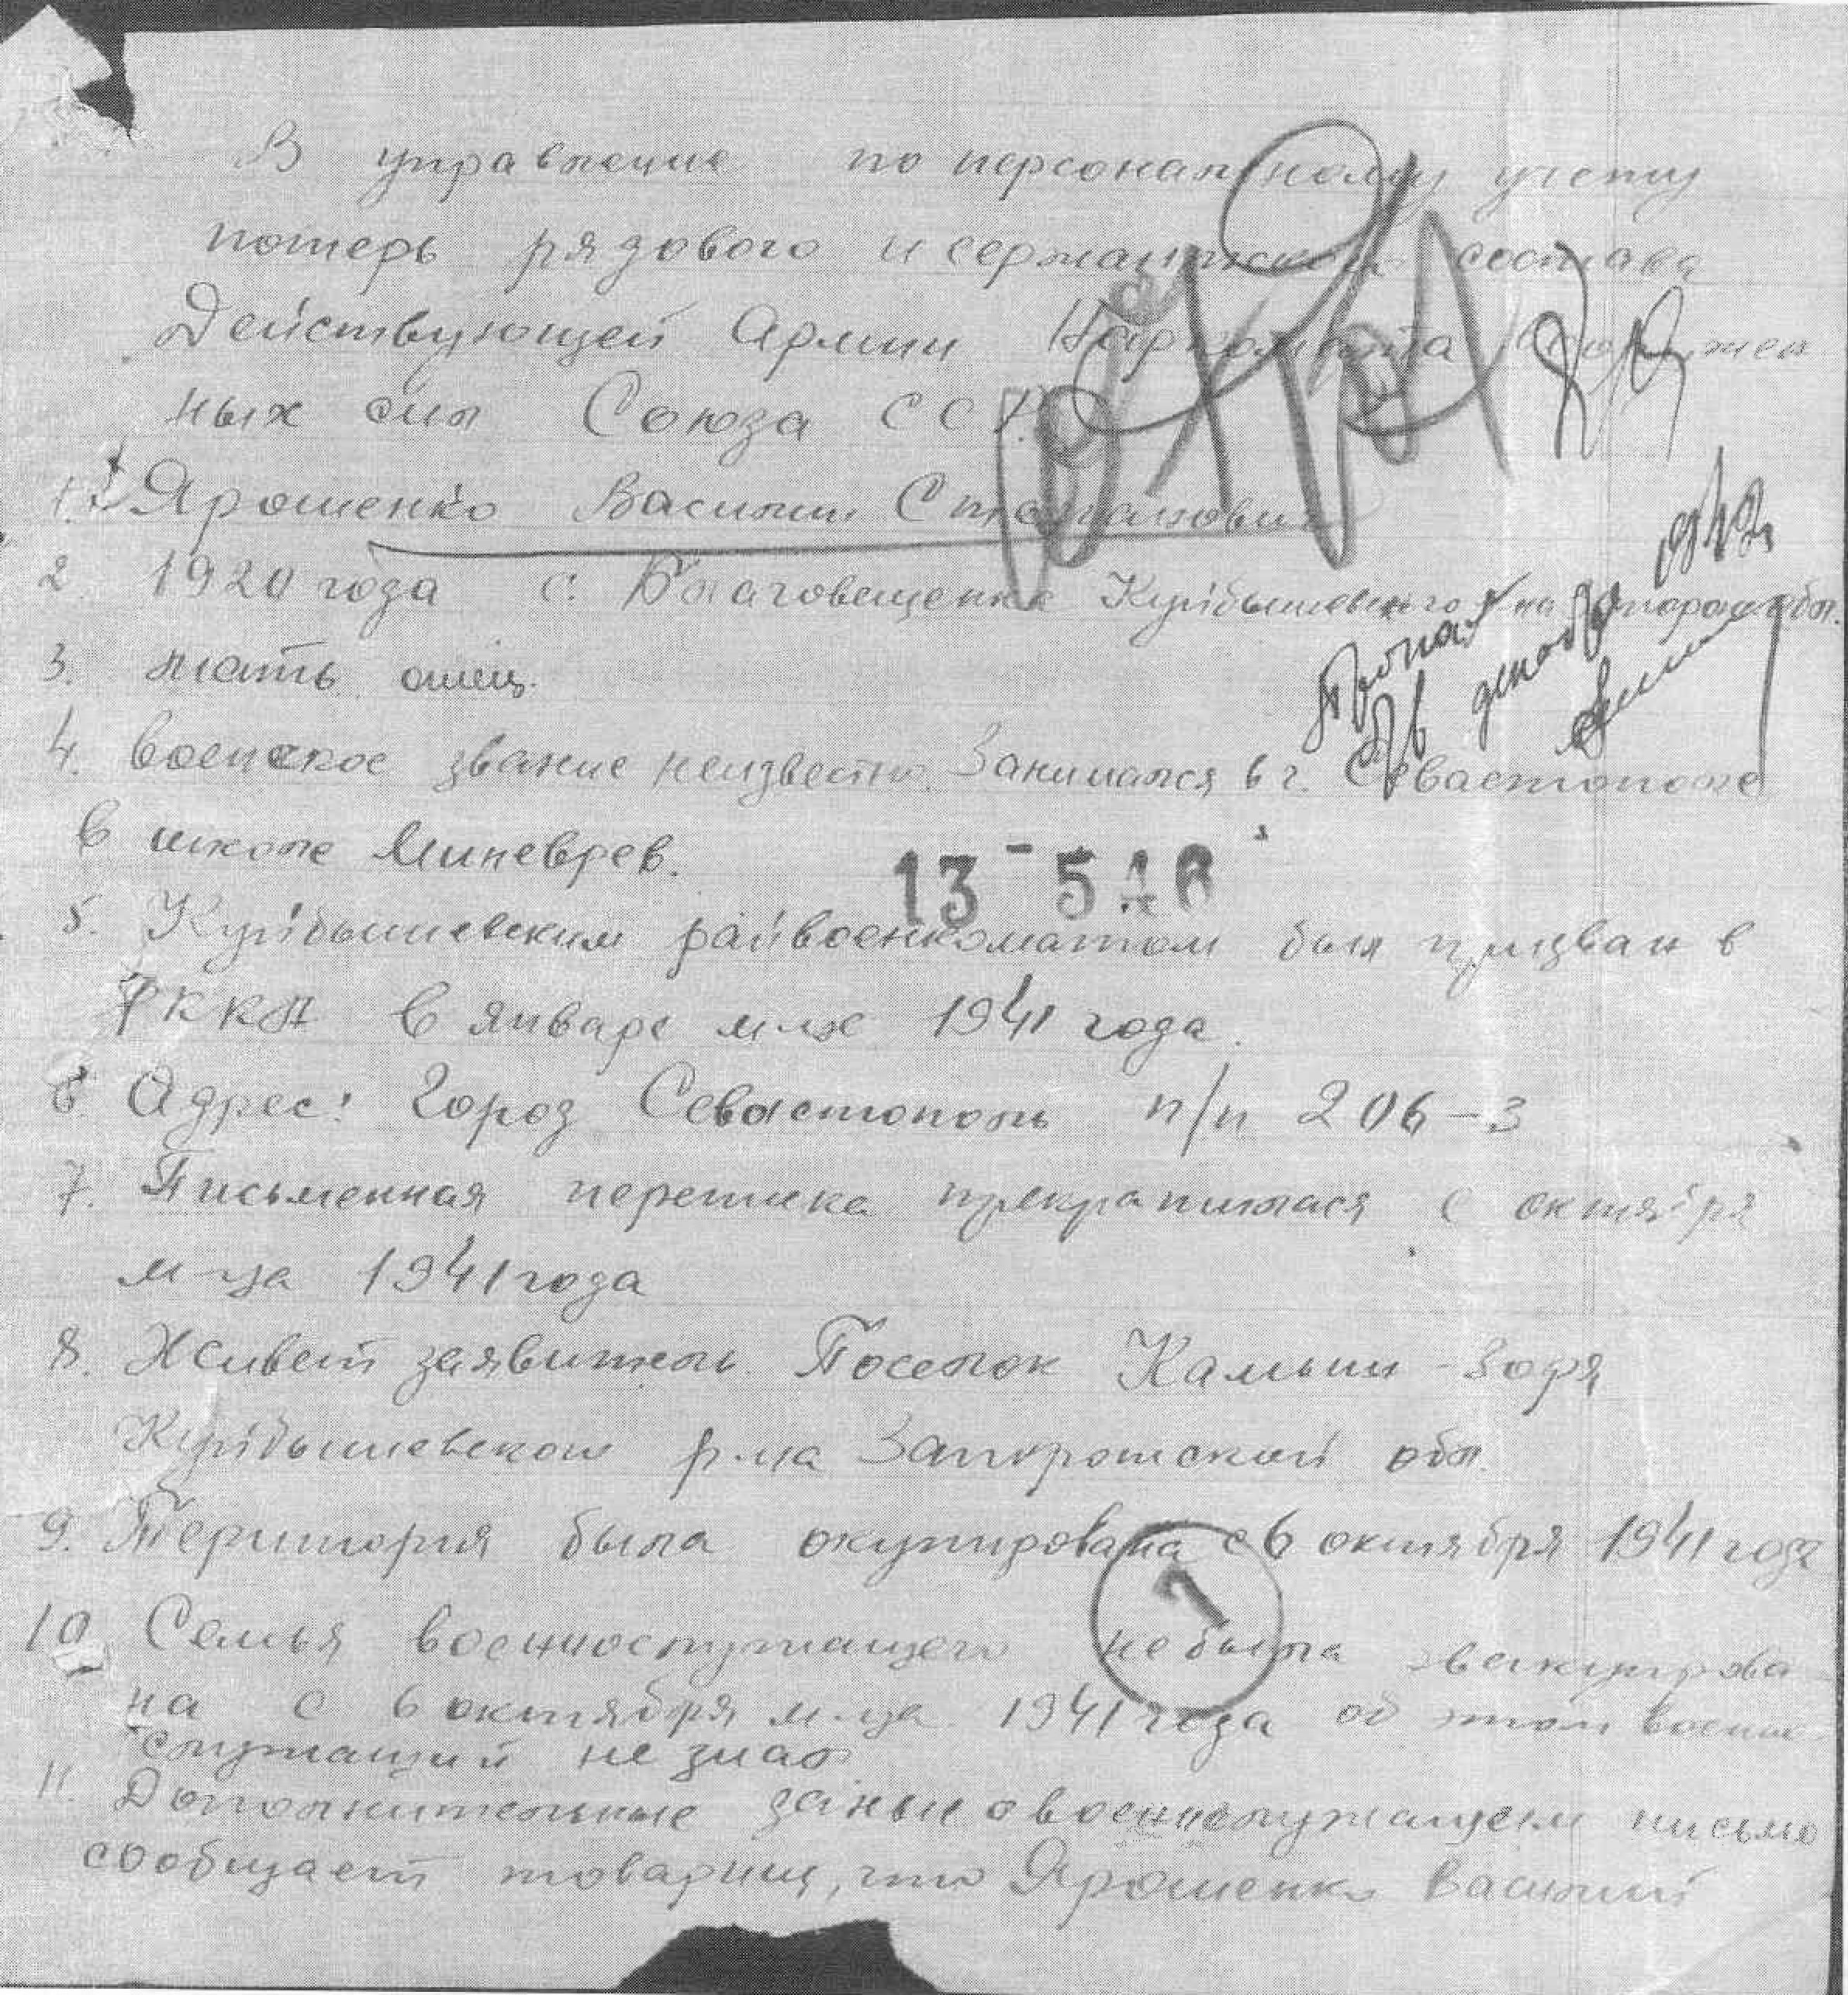 В управление по персональному учету
потерь рядового и сержантского состава
Действующей Армии Наркомата Вооружен
ных сил Союза ССР.
1. Ярошенко Василий Степанович
2. 1920 года с. Благовещенка Куйбышевского р-на Запорож. обл.
3. мать отец.
4. Военское звание неизвестно. Занимался в г. Севастополе
в школе Миневрев.
13 - 5 46
5. Куйбышевским райвоенкоматом был призван в
РККА в январе м-це 1941 года.
6. Адрес: Город Севастополь п/п 206-3
7. Письменная переписка прекратилася с октября
м-ца 1941 года
8. Живет заявитель Поселок Камыш-Зоря
Куйбышевского р-на Запорожской обл.
9. Територия была окупирована с 6 октября 1941 года
1
10 Семья военнослужащего не была эвакуирова
на с 6 октября м-ца 1941 года об этом военно
служащий не знал
11. Дополнительные даные о военнослужащем письмо
сообщает товарищ, что Ярошенко Василий
Пропал
в декабре 1942